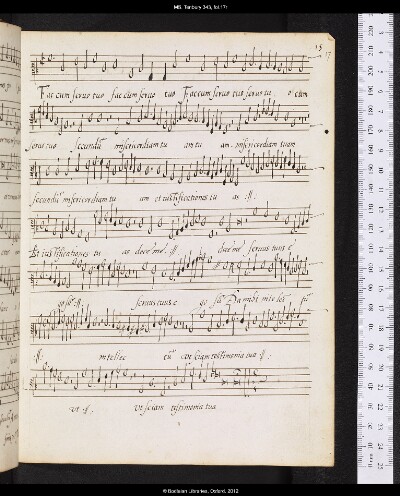 MS. Tenbury 343, fol.17r
15
17
Fac cum seruo tuo fac cum seruo tuo Fac cum seruo tuo seruo tu o cum
seruo tuo secundū misericordiam tu am tu am misericordiam tuam
secundū misericordiam tu am et iustificationes tu as :||:
Et iustificationes tu as doce me :||: doce me seruus tuus e
go sū :||: seruus tuus e go sū Da mihi intelle
:||: intellec tū vt sciam testimonia tua :||:
vt :||: vt sciam testimonia tua
© Bodleian Libraries, Oxford, 2012